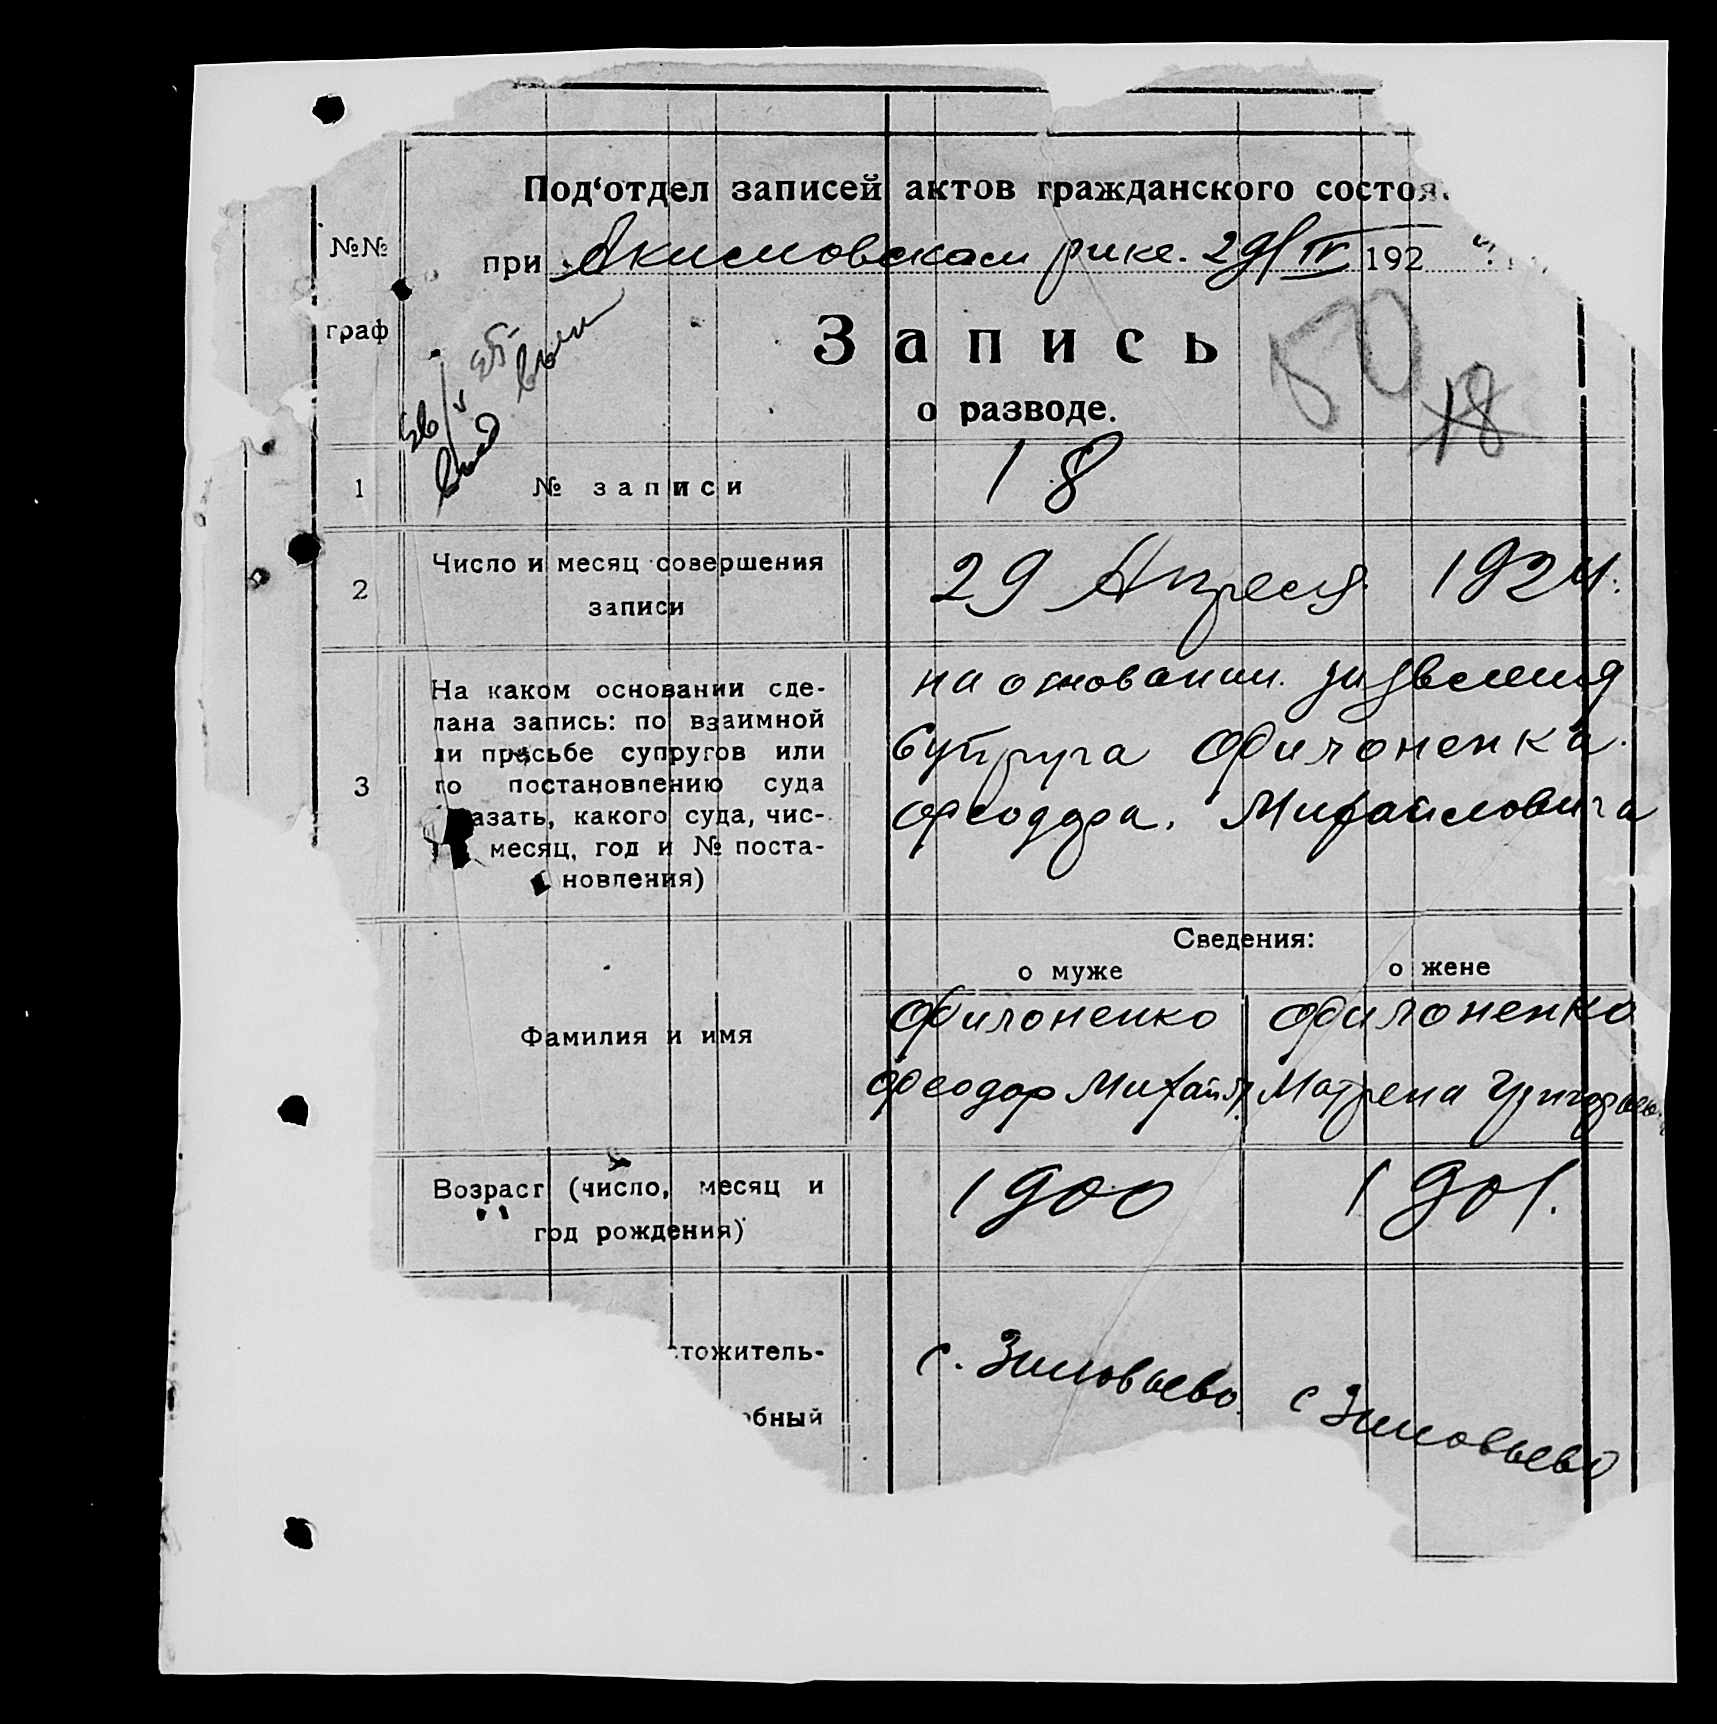 Под‘отдел записей актов гражданского состоя
№№ при Акимовском рике. 29/IV 192
граф
Запись
о разводе.
50
18
1 № записи 18
2 Число и месяц совершения записи 29 Апреля 1924.
3 На каком основании сде-
лана запись: по взаимной
ли просьбе супругов или
по постановлению суда
азать, какого суда, чис-
месяц, год и № поста-
новления)
на основании. заявления
супруга Филоненка.
Феодора. Михайловича
Сведения:
о муже о жене
Фамилия и имя
Филоненко Филоненко
Феодор Михайл Матрена Григорьев
Возраст (число, месяц и
год рождения)
1900 1901.
тожитель-
обный
с. Зиновьево. с Зиновьево